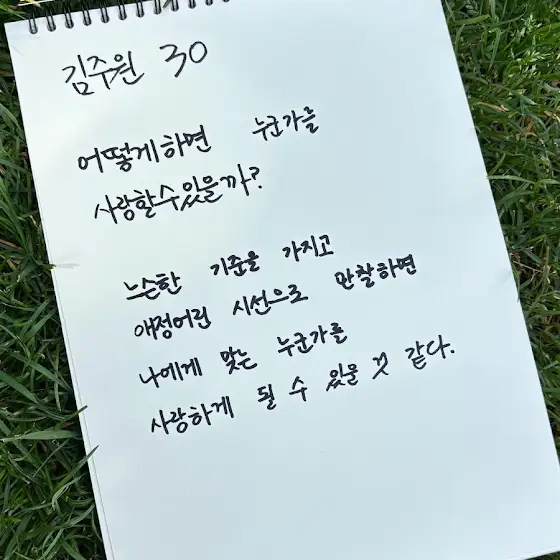 김주원 30
어떻게하면 누군가를
사랑할수있을까?
느슨한 기준을 가지고
애정어린 시선으로 관찰하면
나에게 맞는 누군가를
사랑하게 될 수 있을 것 같다.